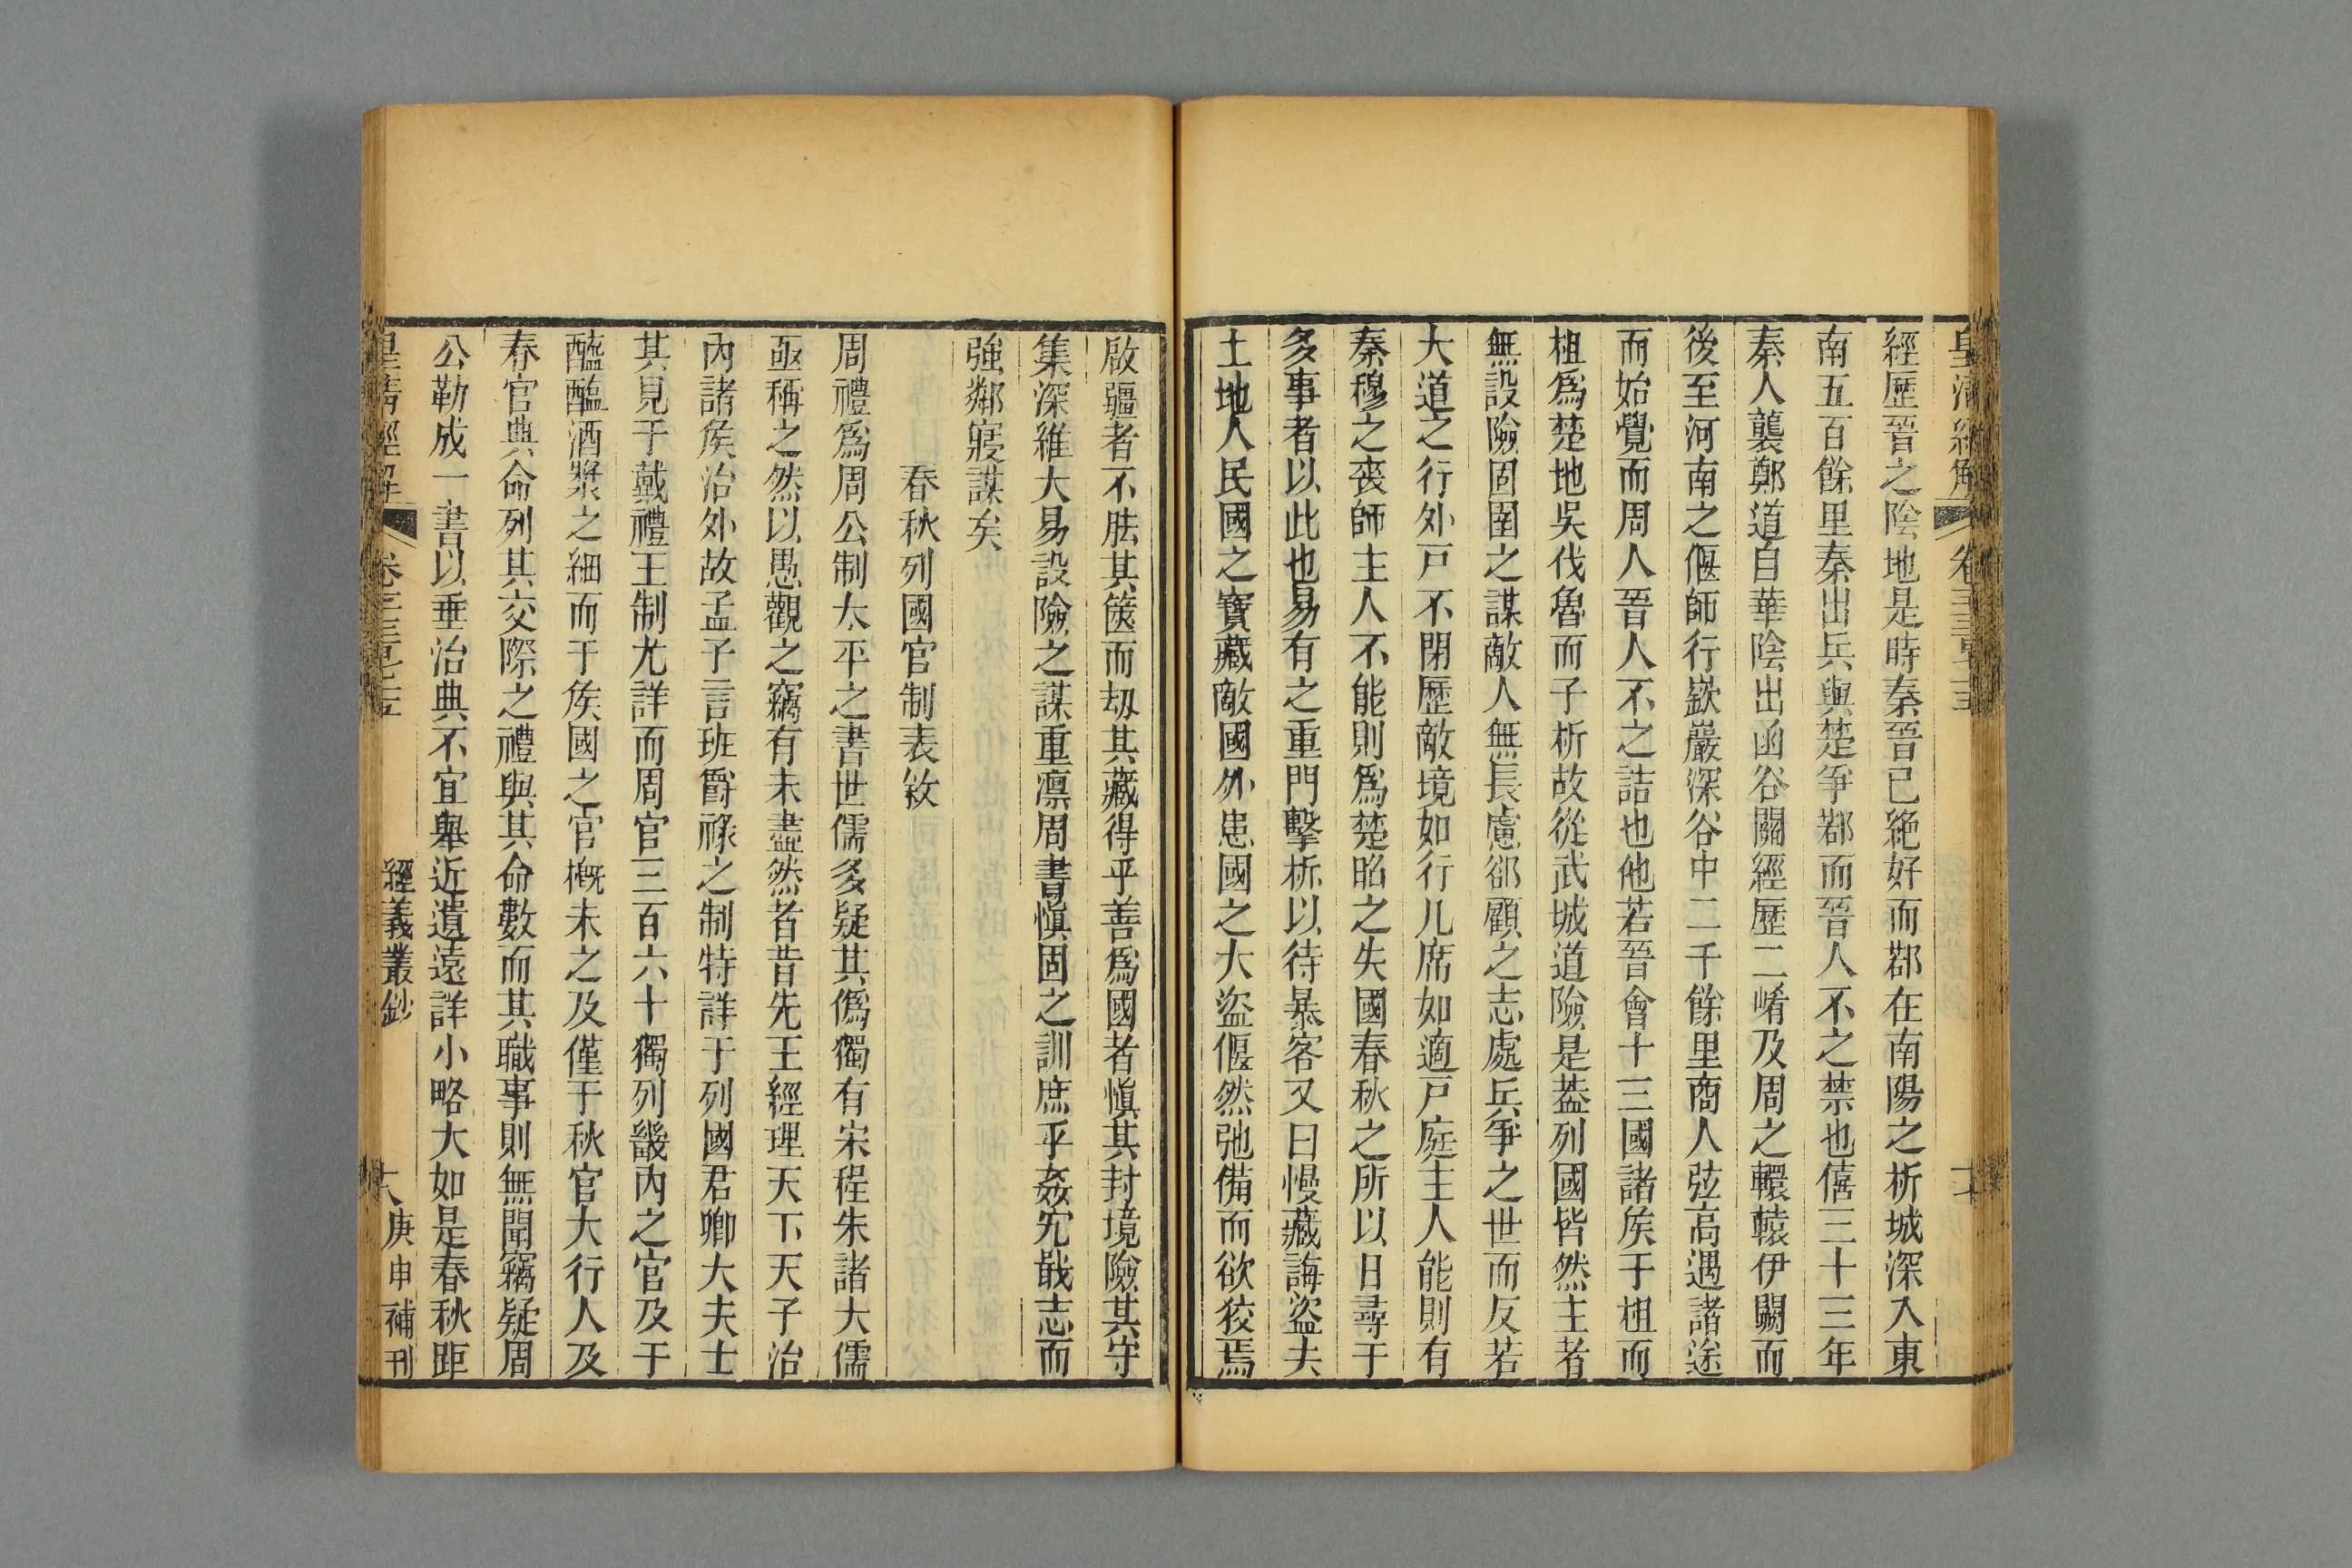 皇清經解
卷千三百
經歷晉之陰地是時秦晉已絕好而鄀在南陽之析城深入東
南五百餘里秦出兵與楚爭鄀而晉人不之禁也僖三十三年
秦人襲鄭道自華陰出函谷關經歷二崤及周之轘轅伊闕而
後至河南之偃師行嶔巖深谷中二千餘里商人弦高遇諸途
而始覺而周人晉人不之詰也他若晉會十三國諸矦于柤而
柤爲楚地吳伐魯而子析故從武城道險是葢列國皆然主者
無設險固圉之謀敵人無長慮郤顧之志處兵爭之世而反若
大道之行外戸不閉歷敵境如行几席如適戸庭主人能則有
秦穆之喪師主人不能則爲楚昭之失國春秋之所以日尋于
多事者以此也易有之重門擊柝以待暴客又曰慢藏誨盜夫
土地人民國之寶藏敵國外患國之大盜偃然弛備而欲狡焉
啟疆者不胠其篋而刼其藏得乎善爲國者愼其封境險其守
集深維大易設險之謀重凛周書愼固之訓庶乎姦宄戢志而
強鄰寢謀矣
春秋列國官制表敘
周禮爲周公制太平之書世儒多疑其僞獨有宋程朱諸大儒
亟稱之然以愚觀之竊有未盡然者昔先王經理天下天子治
內諸矦治外故孟子言班爵祿之制特詳于列國君卿大夫士
其見于戴禮王制尤詳而周官三百六十獨列畿內之官及于
醯醢酒漿之細而于矦國之官槪未之及僅于秋官大行人及
春官典命列其交際之禮與其命數而其職事則無聞竊疑周
公勒成一書以垂治典不宜舉近遺遠詳小略大如是春秋距
皇清經解
卷千三百
經義叢鈔
庚申補刊